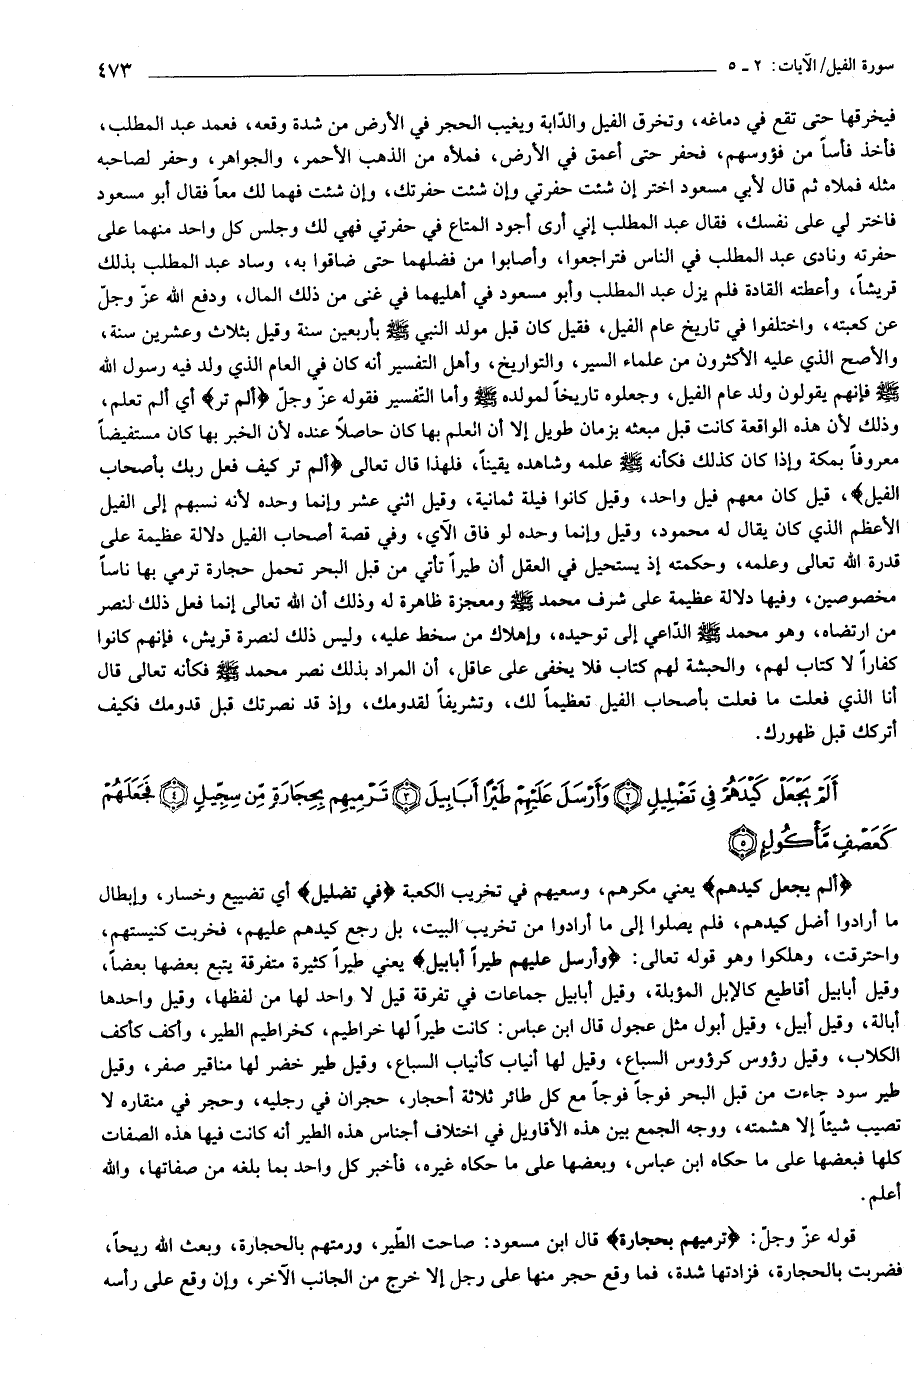 سورة الفيل/ الآيات: ٢ ـ ٥ ٤٧٣
فيخرقها حتى تقع في دماغه، وتخرق الفيل والدّابة ويغيب الحجر في الأرض من شدة وقعه، فعمد عبد المطلب،
فأخذ فأساً من فؤوسهم، فحفر حتى أعمق في الأرض، فملأه من الذهب الأحمر، والجواهر، وحفر لصاحبه
مثله فملاه ثم قال لأبي مسعود اختر إن شئت حفرتي وإن شئت حفرتك، وإن شئت فهما لك معاً فقال أبو مسعود
فاختر لي على نفسك، فقال عبد المطلب إني أرى أجود المتاع في حفرتي فهي لك وجلس كل واحد منهما على
حفرته ونادى عبد المطلب في الناس فتراجعوا، وأصابوا من فضلهما حتى ضاقوا به، وساد عبد المطلب بذلك
قريشاً، وأعطته القادة فلم يزل عبد المطلب وأبو مسعود في أهليهما في غنى من ذلك المال، ودفع الله عزّ وجلّ
عن كعبته، واختلفوا في تاريخ عام الفيل، فقيل كان قبل مولد النبي ﷺ بأربعين سنة وقيل بثلاث وعشرين سنة،
والأصح الذي عليه الأكثرون من علماء السير، والتواريخ، وأهل التفسير أنه كان في العام الذي ولد فيه رسول الله
ﷺ فإنهم يقولون ولد عام الفيل، وجعلوه تاريخاً لمولده ﷺ وأما التّفسير فقوله عزّ وجلّ ﴿ألم تر﴾ أي ألم تعلم،
وذلك لأن هذه الواقعة كانت قبل مبعثه بزمان طويل إلا أن العلم بها كان حاصلاً عنده لأن الخبر بها كان مستفيضاً
معروفاً بمكة وإذا كان كذلك فكأنه ﷺ علمه وشاهده يقيناً، فلهذا قال تعالى ﴿ألم تر كيف فعل ربك بأصحاب
الفيل﴾، قيل كان معهم فيل واحد، وقيل كانوا فيلة ثمانية، وقيل اثني عشر وإنما وحده لأنه نسبهم إلى الفيل
الأعظم الذي كان يقال له محمود، وقيل وإنما وحده لو فاق الآي، وفي قصة أصحاب الفيل دلالة عظيمة على
قدرة الله تعالى وعلمه، وحكمته إذ يستحيل في العقل أن طيراً تأتي من قبل البحر تحمل حجارة ترمي بها ناساً
مخصوصين، وفيها دلالة عظيمة على شرف محمد ﷺ ومعجزة ظاهرة له وذلك أن الله تعالى إنما فعل ذلك لنصر
من ارتضاه، وهو محمد ﷺ الدّاعي إلى توحيده، وإهلاك من سخط عليه، وليس ذلك لنصرة قريش، فإنهم كانوا
كفاراً لا كتاب لهم، والحبشة لهم كتاب فلا يخفى على عاقل، أن المراد بذلك نصر محمد ﷺ فكأنه تعالى قال
أنا الذي فعلت ما فعلت بأصحاب الفيل تعظيماً لك، وتشريفاً لقدومك، وإذ قد نصرتك قبل قدومك فكيف
أتركك قبل ظهورك.
أَلَمْ يَجْعَلْ كَيْدَهُمْ فِي تَضْلِيلٍ ۝٢ وَأَرْسَلَ عَلَيْهِمْ طَيْرًا أَبَابِيلَ ۝٣ تَرْمِيهِم بِحِجَارَةٍ مِّن سِجِّيلٍ ۝٤ فَجَعَلَهُمْ
كَعَصْفٍ مَّأْكُولٍ ۝٥
﴿ألم يجعل كيدهم﴾ يعني مكرهم، وسعيهم في تخريب الكعبة ﴿في تضليل﴾ أي تضييع وخسار، وإبطال
ما أرادوا أضل كيدهم، فلم يصلوا إلى ما أرادوا من تخريب البيت، بل رجع كيدهم عليهم، فخربت كنيستهم،
واحترقت، وهلكوا وهو قوله تعالى: ﴿وأرسل عليهم طيراً أبابيل﴾ يعني طيراً كثيرة متفرقة يتبع بعضها بعضاً،
وقيل أبابيل أقاطيع كالإبل المؤبلة، وقيل أبابيل جماعات في تفرقة قيل لا واحد لها من لفظها، وقيل واحدها
أبالة، وقيل أبيل، وقيل أبول مثل عجول قال ابن عباس: كانت طيراً لها خراطيم، كخراطيم الطير، وأكف كأكف
الكلاب، وقيل رؤوس كرؤوس السباع، وقيل لها أنياب كأنياب السباع، وقيل طير خضر لها مناقير صفر، وقيل
طير سود جاءت من قبل البحر فوجاً فوجاً مع كل طائر ثلاثة أحجار، حجران في رجليه، وحجر في منقاره لا
تصيب شيئاً إلا هشمته، ووجه الجمع بين هذه الأقاويل في اختلاف أجناس هذه الطير أنه كانت فيها هذه الصفات
كلها فبعضها على ما حكاه ابن عباس، وبعضها على ما حكاه غيره، فأخبر كل واحد بما بلغه من صفاتها، والله
أعلم.
قوله عزّ وجلّ: ﴿ترميهم بحجارة﴾ قال ابن مسعود: صاحت الطّير، ورمتهم بالحجارة، وبعث الله ريحاً،
فضربت بالحجارة، فزادتها شدة، فما وقع حجر منها على رجل إلا خرج من الجانب الآخر، وإن وقع على رأسه